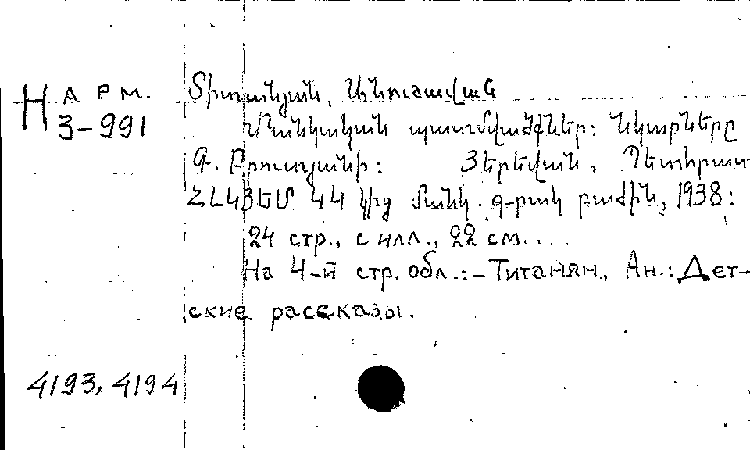 Н АРМ.
3-991
Տիտանյան, Անուշավան
Մանկական պատմվածքներ: Նկարները
Գ. Բրուտյանի: Յերեվան, Պետհրատ
ՀԼԿՅԵՄ ԿԿ կից մանկ. գ-րակ բաժին, 1938:
24 стр., с илл., 22 см....
На 4-й стр. обл.:-Титанян, Ан.: Дет-
ские рассказы.
4193, 4194